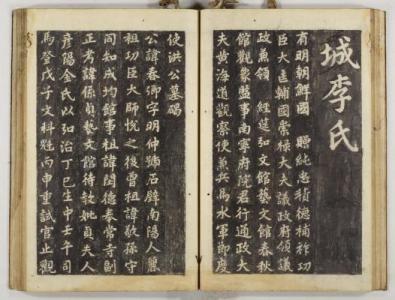 城李氏
有明朝鮮國 贈純忠積德補祚功
臣大匡輔國崇祿大夫議政府領議
政兼領 經筵弘文館藝文館春秋
館觀象監事南寧府院君行通政大
夫黃海道觀察使兼兵馬水軍節度
使洪公墓碣
公諱春卿字明仲號石壁南陽人麗
祖功臣大師悅之後曾祖諱敬孫守
同知成均館事祖諱閏德奉常寺副
正考諱係貞藝文館待敎妣貞夫人
彦陽金氏以弘治丁巳生中壬午司
馬登戊子文科魁丙申重試官止觀